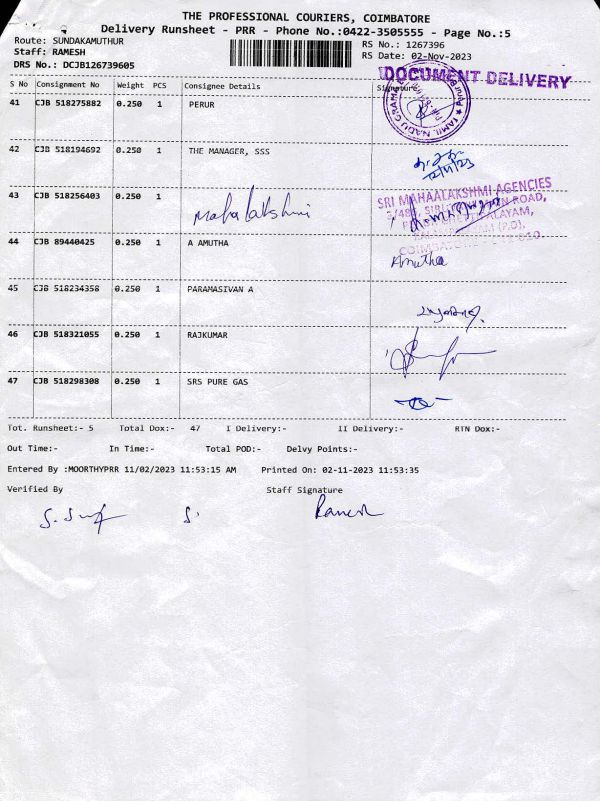 THE PROFESSIONAL COURIERS, COIMBATORE
Delivery Runsheet - PRR - Phone No.:0422-3505555 - Page No.:5
Route: SUNDAKAMUTHUR
RS No.: 1267396
Staff: RAMESH
RS Date: 02-Nov-2023
DRS No.: DCJB126739605
DOCUMENT DELIVERY
S No Consignment No Weight PCS Consignee Details Signature
41 CJB 518275882 0.250 1 PERUR
TAMIL NADU GRAMA
42 CJB 518194692 0.250 1 THE MANAGER, SSS
43 CJB 518256403 0.250 1 Maha lakshmi
SRI MAHAALAKSHMI AGENCIES
ROAD,
44 CJB 89440425 0.250 1 A AMUTHA
Amutha
45 CJB 518234358 0.250 1 PARAMASIVAN A
46 CJB 518321055 0.250 1 RAJKUMAR
47 CJB 518298308 0.250 1 SRS PURE GAS
Tot. Runsheet:- 5 Total Dox:- 47 I Delivery:- II Delivery:- RTN Dox:-
Out Time:- In Time:- Total POD:- Delvy Points:-
Entered By :MOORTHYPRR 11/02/2023 11:53:15 AM Printed On: 02-11-2023 11:53:35
Verified By Staff Signature
Ramesh